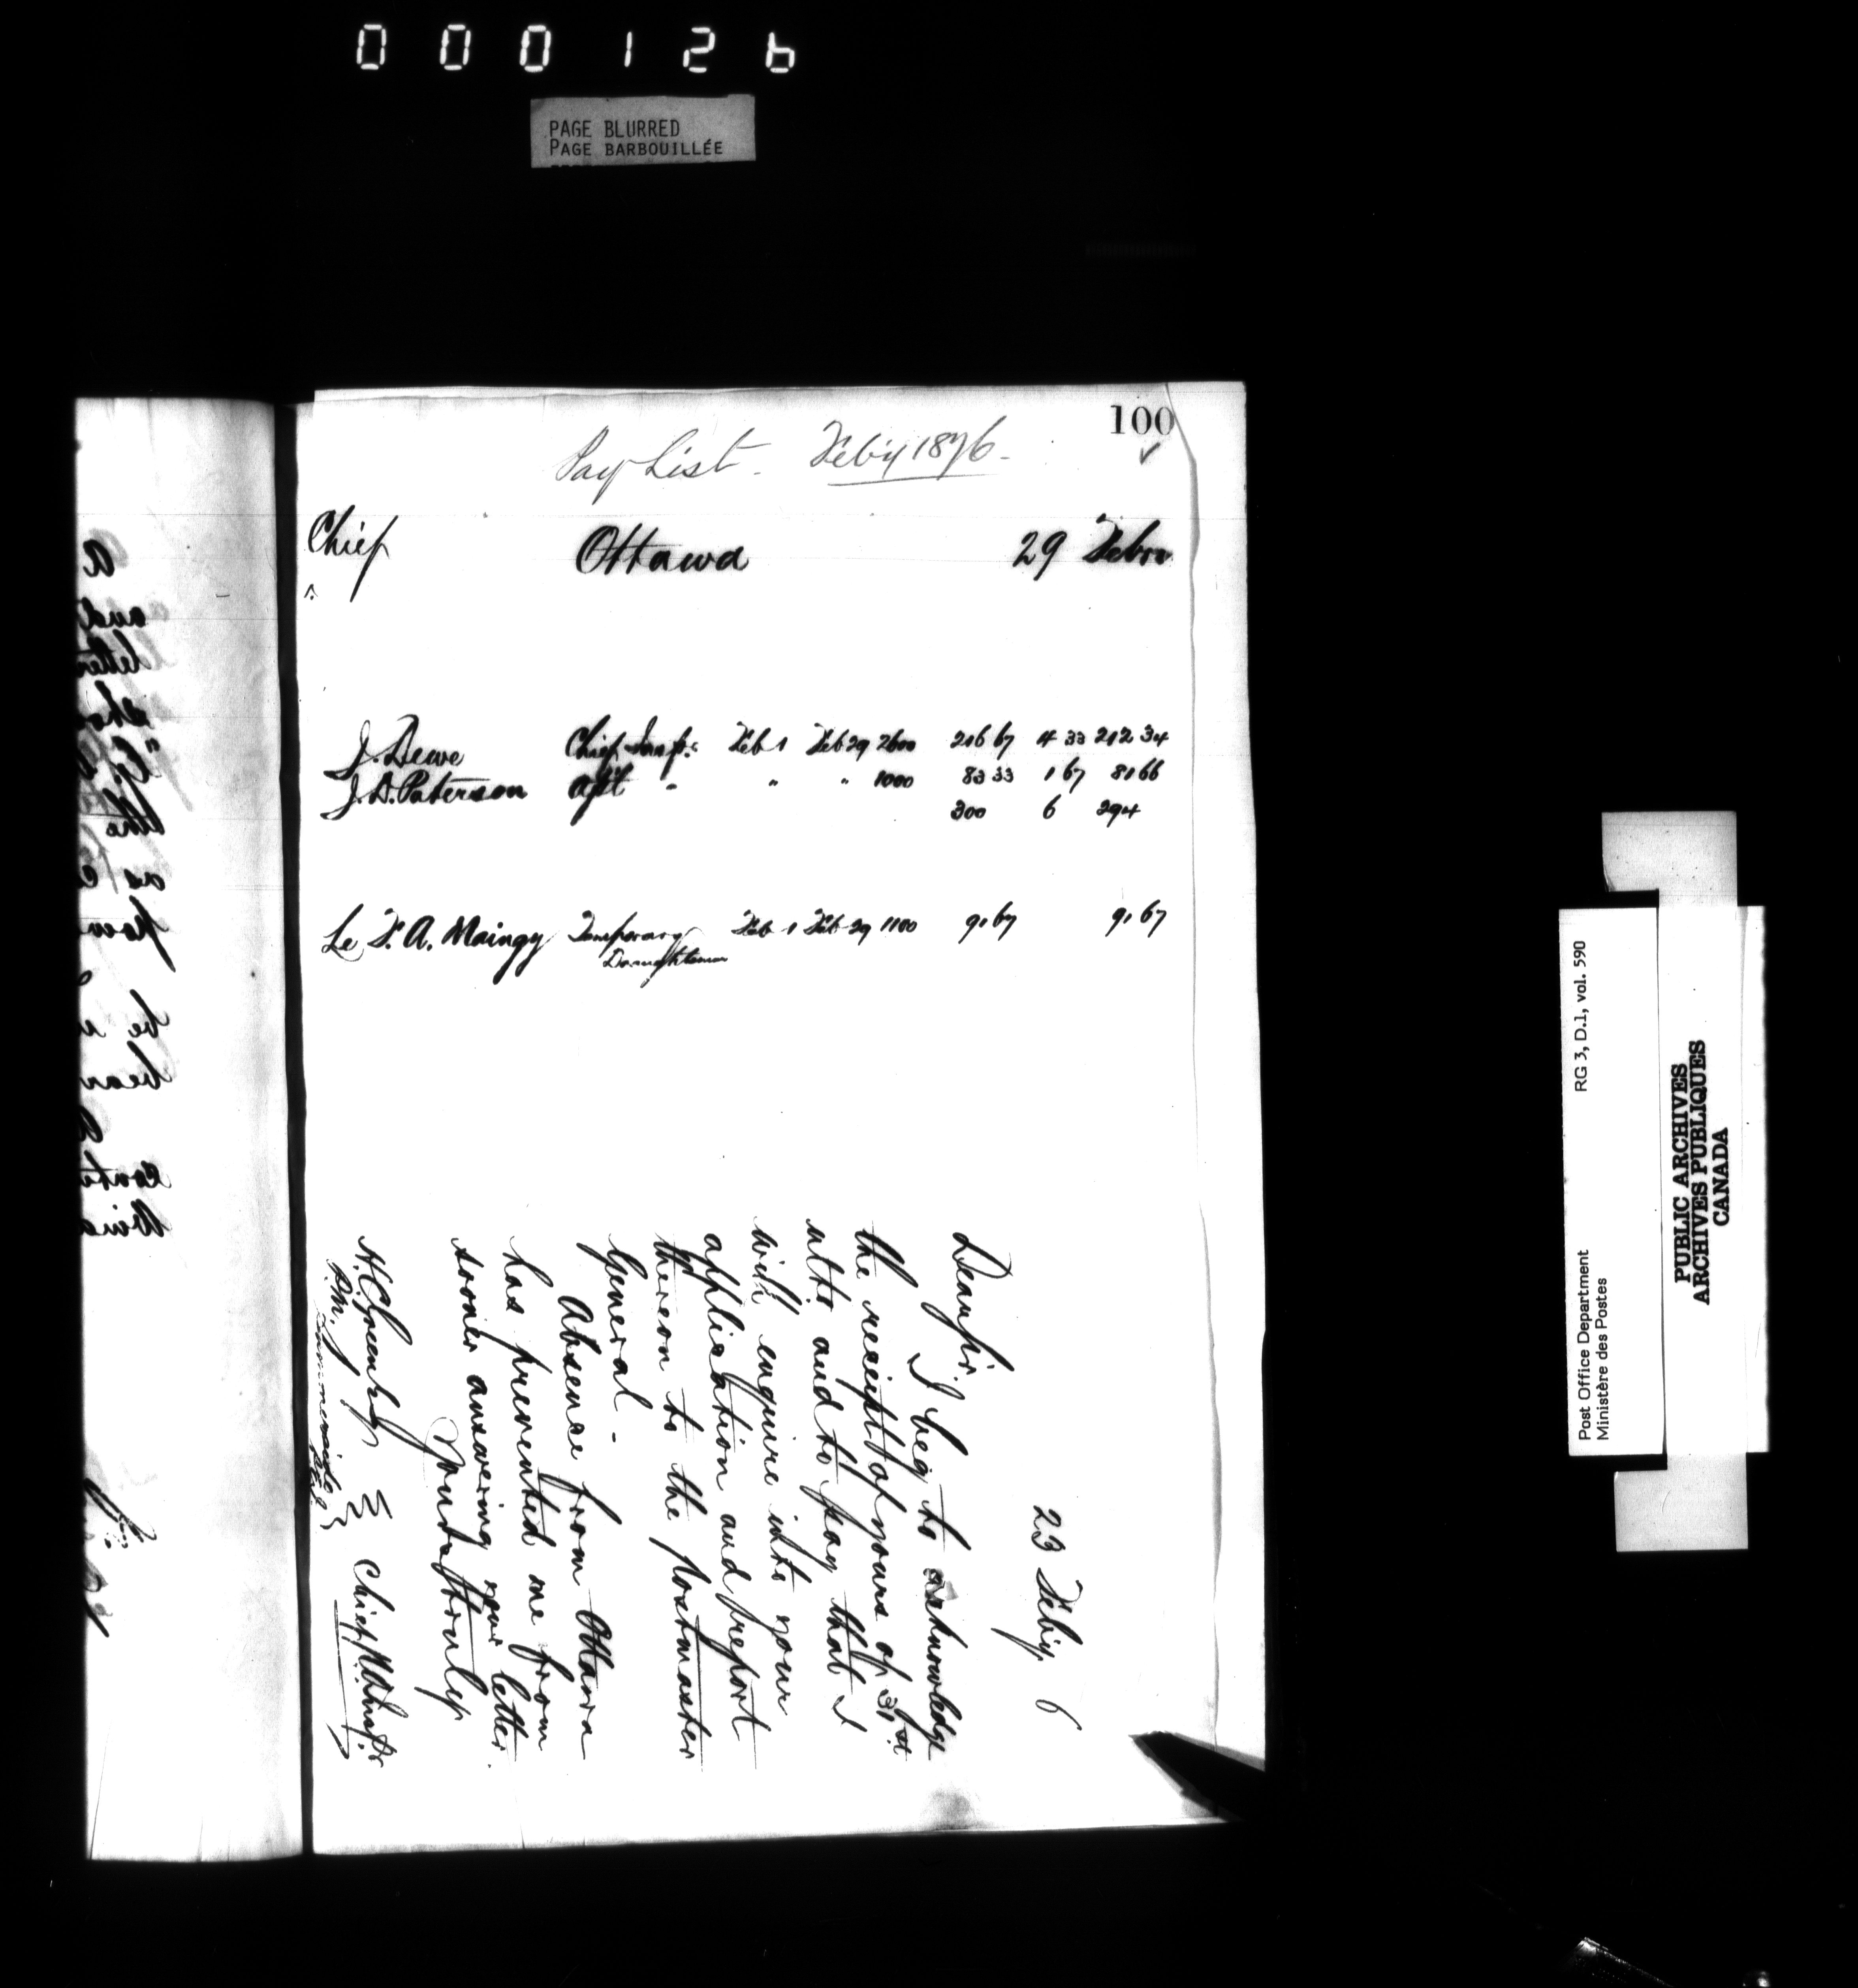 000126
PAGE BLURRED
PAGE BARBOUILLÉE
100
Pay List. Feby 1876.
Chief Ottawa 29 Febru
J. Dewe Chief Inspr. Feb 1 Feb 29 2600 216 67 4 33 212 34
J. D. Paterson Asst " " " 1000 83 33 1 67 81 66
300 6 294
Le F. A. Maingy Temporary Feb 1 Feb 29 1100 91 67 91 67
Draughtsman
23 Feby 6
Dear Sir.
I beg to acknowledge
the receipt of yours of 31st
ulto and to say that I
will enquire into your
application and report
thereon to the postmaster
General -
Absence from Ottawa
has prevented me from
sooner answering your letter.
Yours truly
Chief P.O. Inspr
P.M.
Summerside
RG 3, D.1, vol. 590
Post Office Department
Ministère des Postes
PUBLIC ARCHIVES
ARCHIVES PUBLIQUES
CANADA